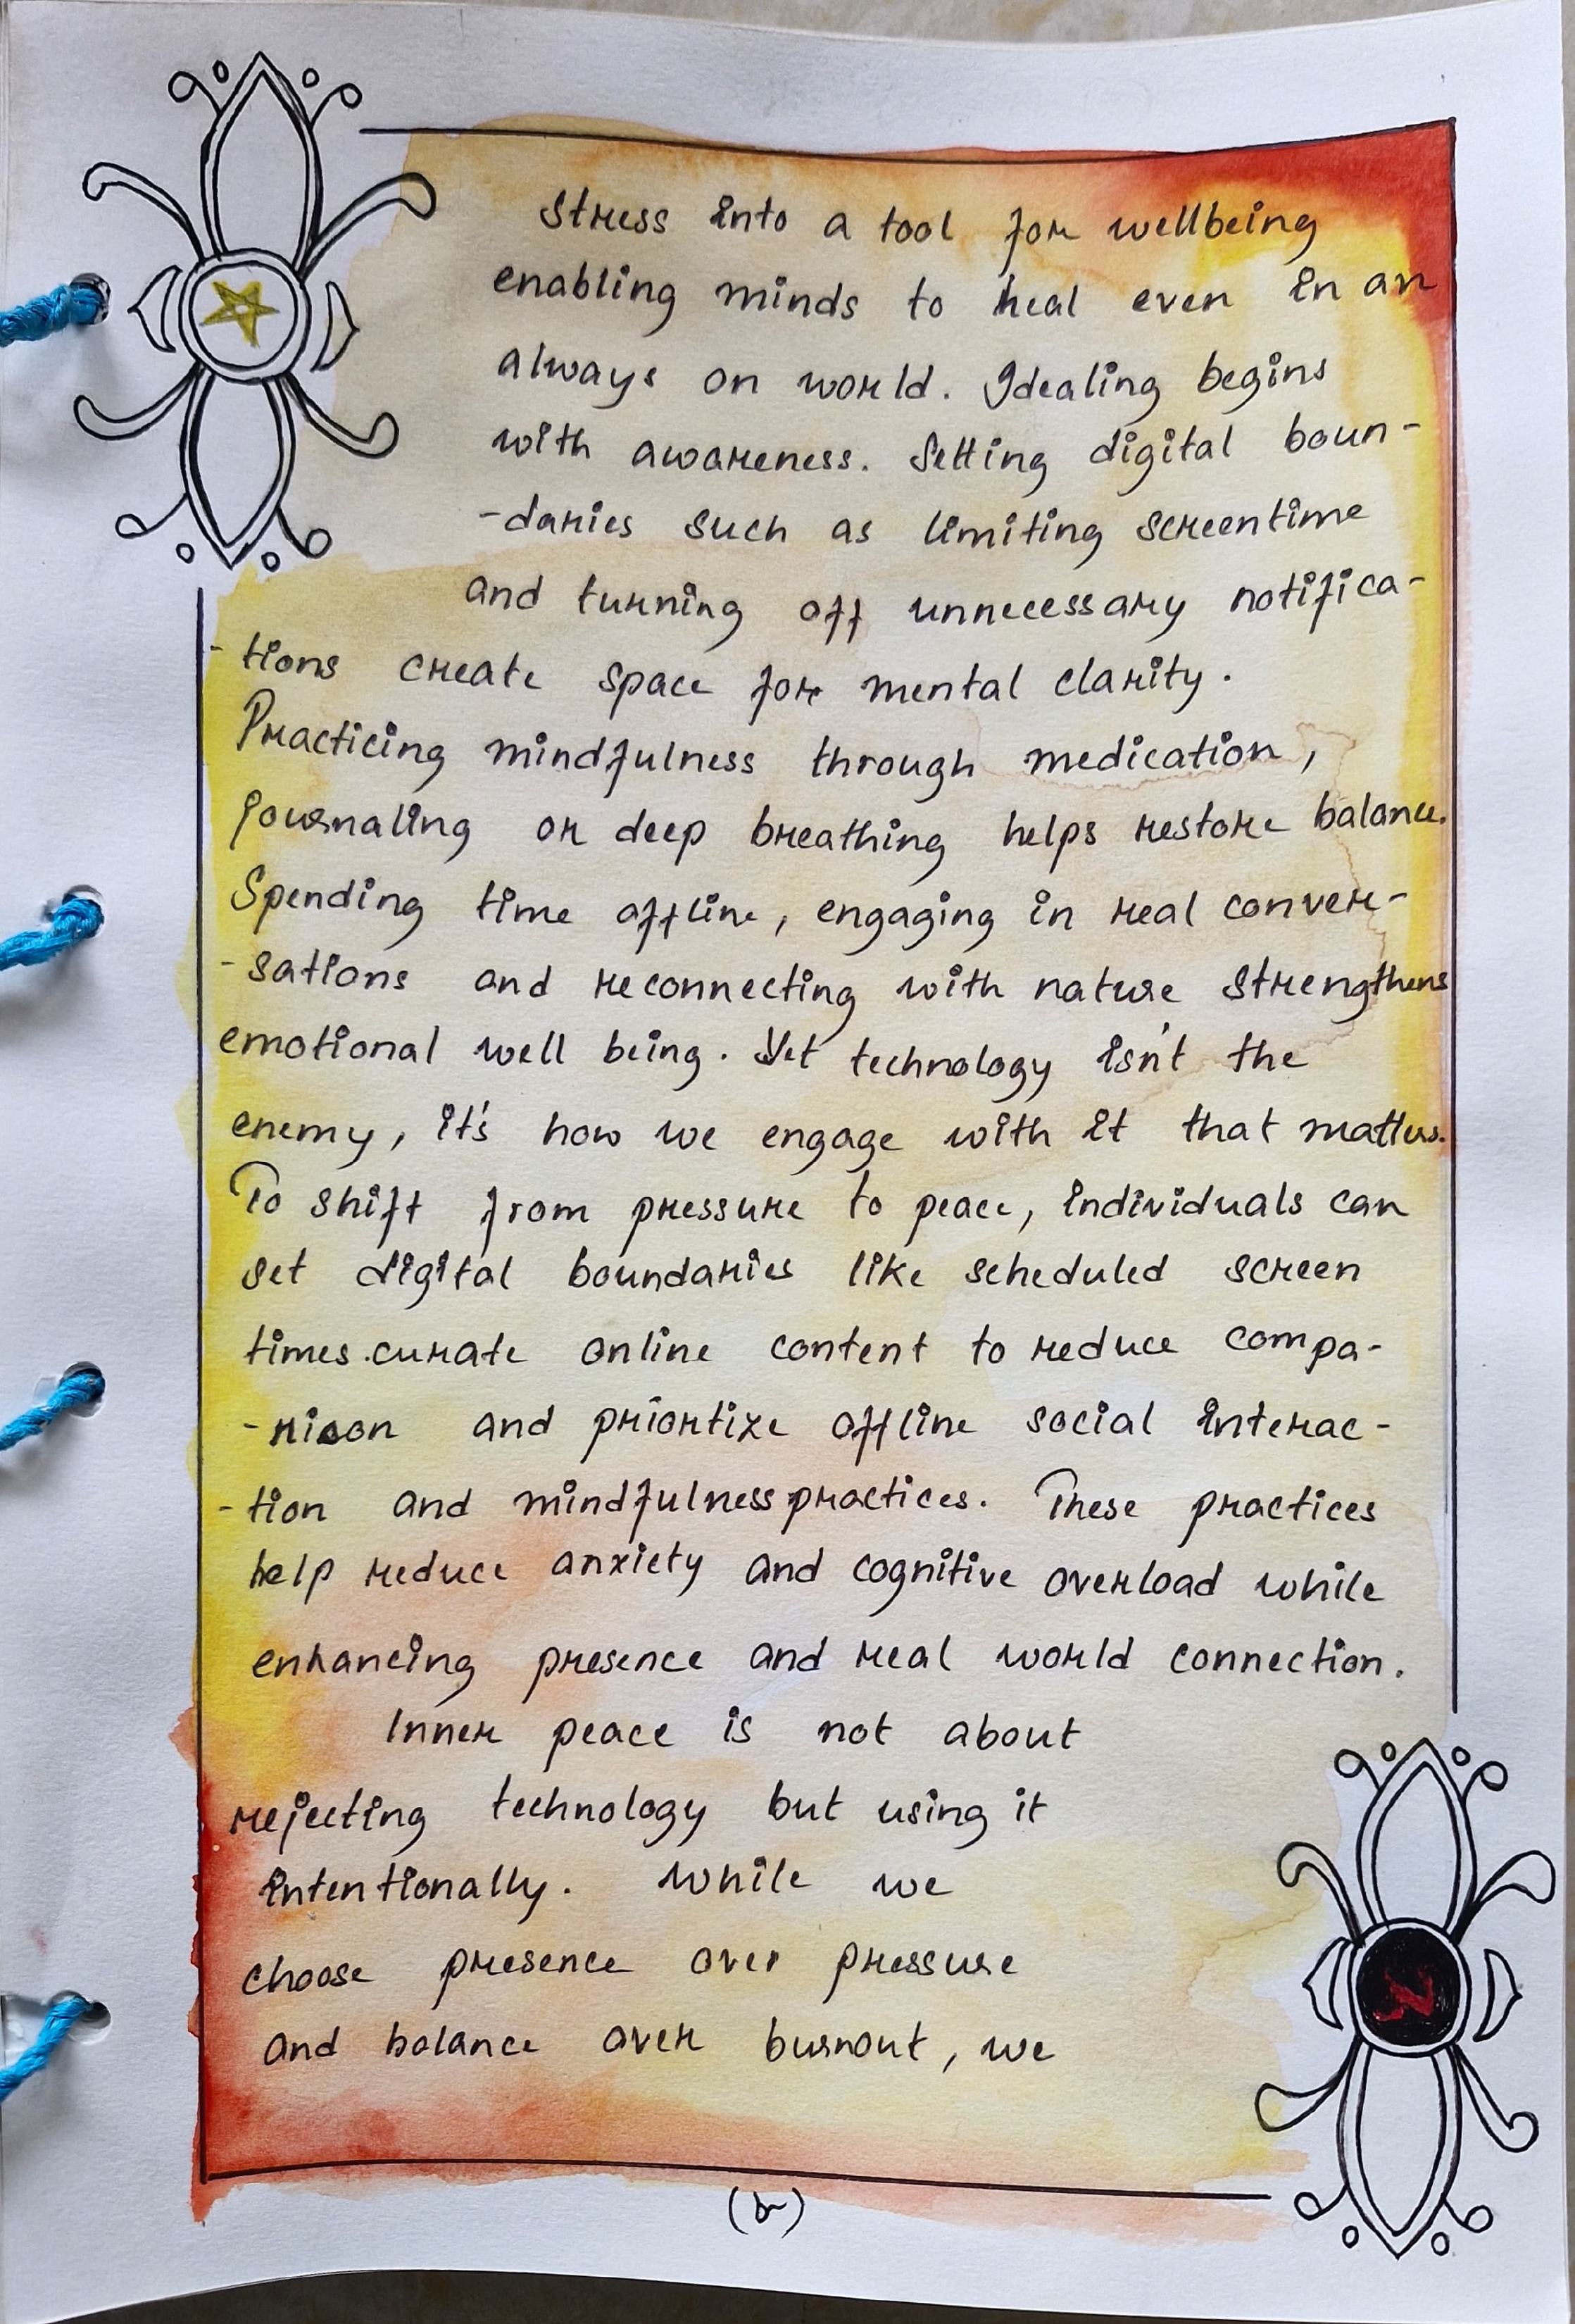 Stress into a tool for wellbeing
enabling minds to heal even in an
always on world. Idealing begins
with awareness. Setting digital boun-
-daries such as limiting screentime
and turning off unnecessary notifica-
-tions create space for mental clarity.
Practicing mindfulness through medication,
journaling or deep breathing helps restore balance.
Spending time offline, engaging in real conver-
-sations and reconnecting with nature strengthens
emotional well being. Yet technology isn't the
enemy, it's how we engage with it that matters.
To shift from pressure to peace, individuals can
set digital boundaries like scheduled screen
times.curate online content to reduce compa-
-rison and priortize offline social interac-
-tion and mindfulness practices. These practices
help reduce anxiety and cognitive overload while
enhancing presence and real world connection.
Inner peace is not about
rejecting technology but using it
intentionally. While we
choose presence over pressure
and balance over burnout, we